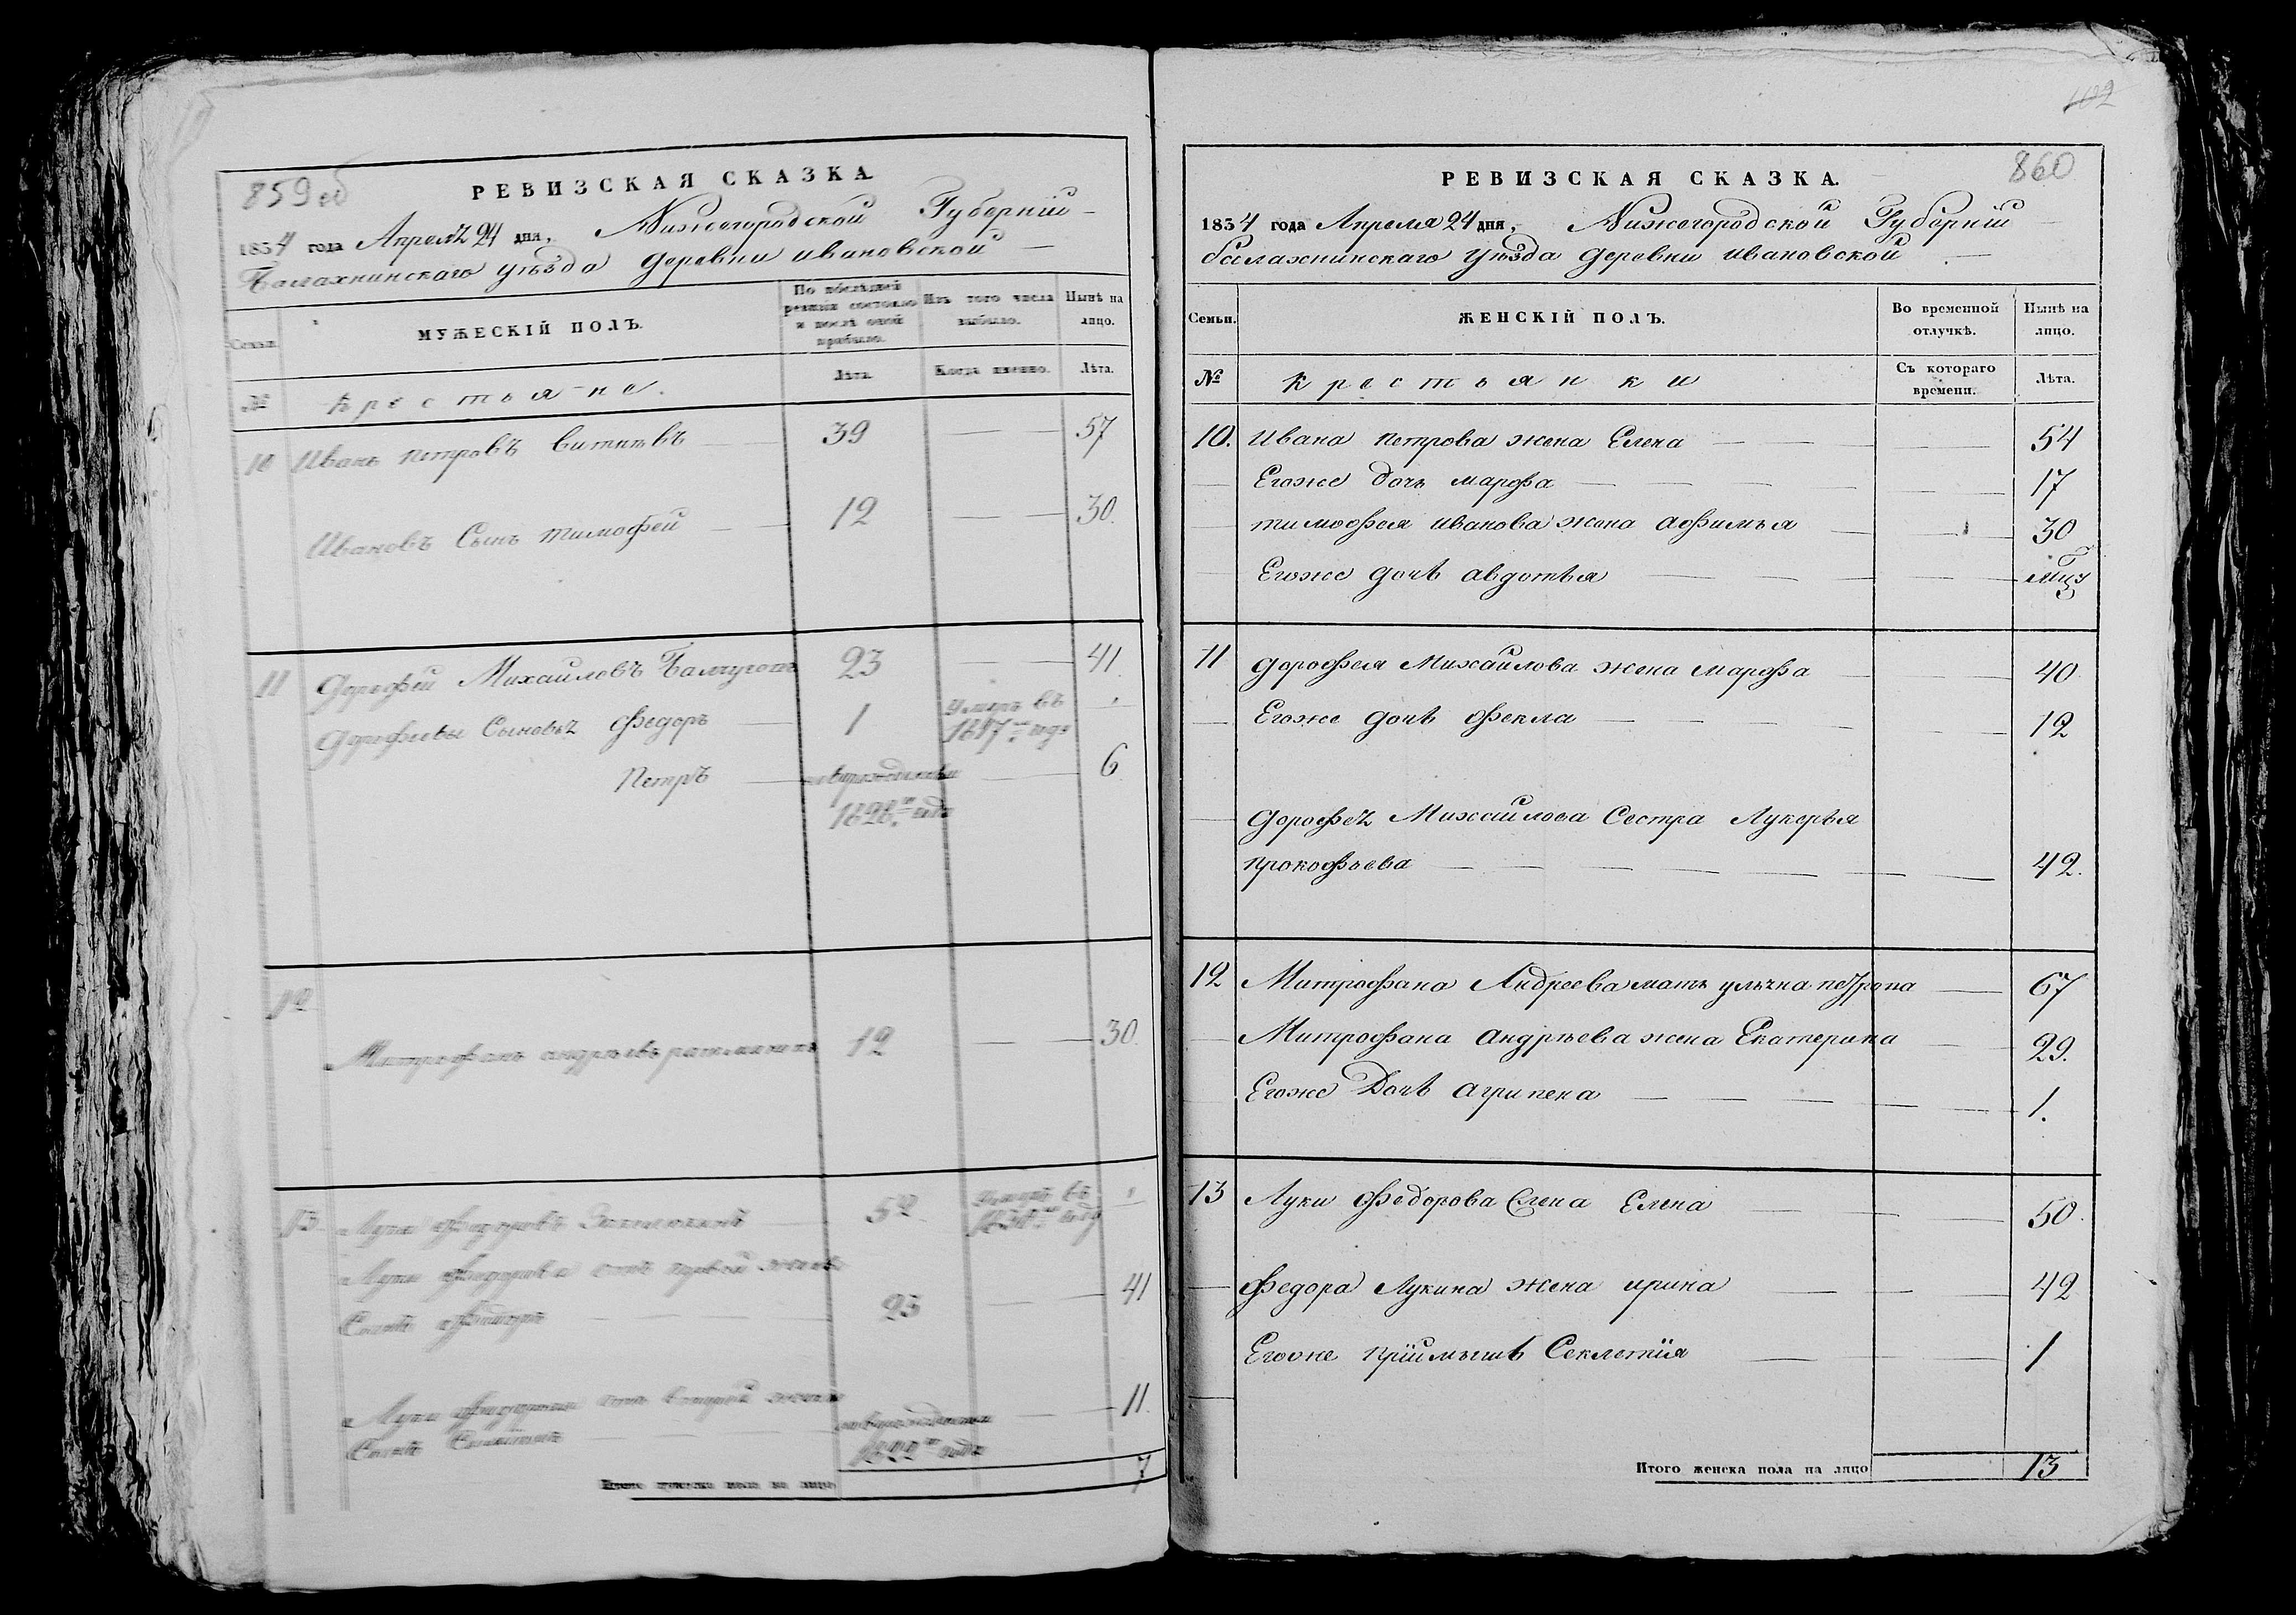 859 об
РЕВИЗСКАЯ СКАЗКА.
1834 года Апреля 24 дня, Нижегородской Губернiи
Балахнинскаго уѣзда деревни ивановской
Семьи.
МУЖЕСКIЙ ПОЛЪ.
По послѣдней ревизiи состояло и послѣ оной прибыло.
Изъ того числа выбыло.
Нынѣ на лицо.
№
крестьяне.
Лѣта.
Когда именно.
Лѣта.
10 Иванъ петровъ 39 57
Ивановъ Сынъ тимофей 12 30.
11 дорофей Михайловъ 23 41
дорофеевы Сыновья федоръ 1 умеръ въ
1817 году
Петръ 6
1828 года
12
Митрофанъ андрѣевъ 12 30.
13 Лука федоровъ 52 умеръ въ
году
Луки федорова отъ первой жены
Сынъ федоръ 23 41
Луки федорова отъ второй жены
Сынъ 11.
года
Итого мужеска пола на лицо 7
102
860
РЕВИЗСКАЯ СКАЗКА.
1834 года Апреля 24 дня, Нижегородской Губернiи
балахнинскаго уѣзда деревни ивановской
Семьи.
ЖЕНСКIЙ ПОЛЪ.
Во временной отлучкѣ.
Нынѣ на лицо.
№
крестьянки
Съ котораго времени.
Лѣта.
10. ивана петрова жена Елена 54
Егоже дочь марфа 17
тимофея иванова жена афимья 30
Егоже дочь авдотья
11 дорофея Михайлова жена марфа 40
Егоже дочь фекла 12
дорофея Михайлова Сестра Лукерья
прокофьева 42.
12 Митрофана Андреева мать 67
Митрофана андрѣева жена Екатерина 29.
Егоже Дочь агрипена 1.
13 Луки федорова жена Елена 50.
федора Лукина жена ирина 42
Егоже прiимышъ Секлетiя 1
Итого женска пола на лицо 13